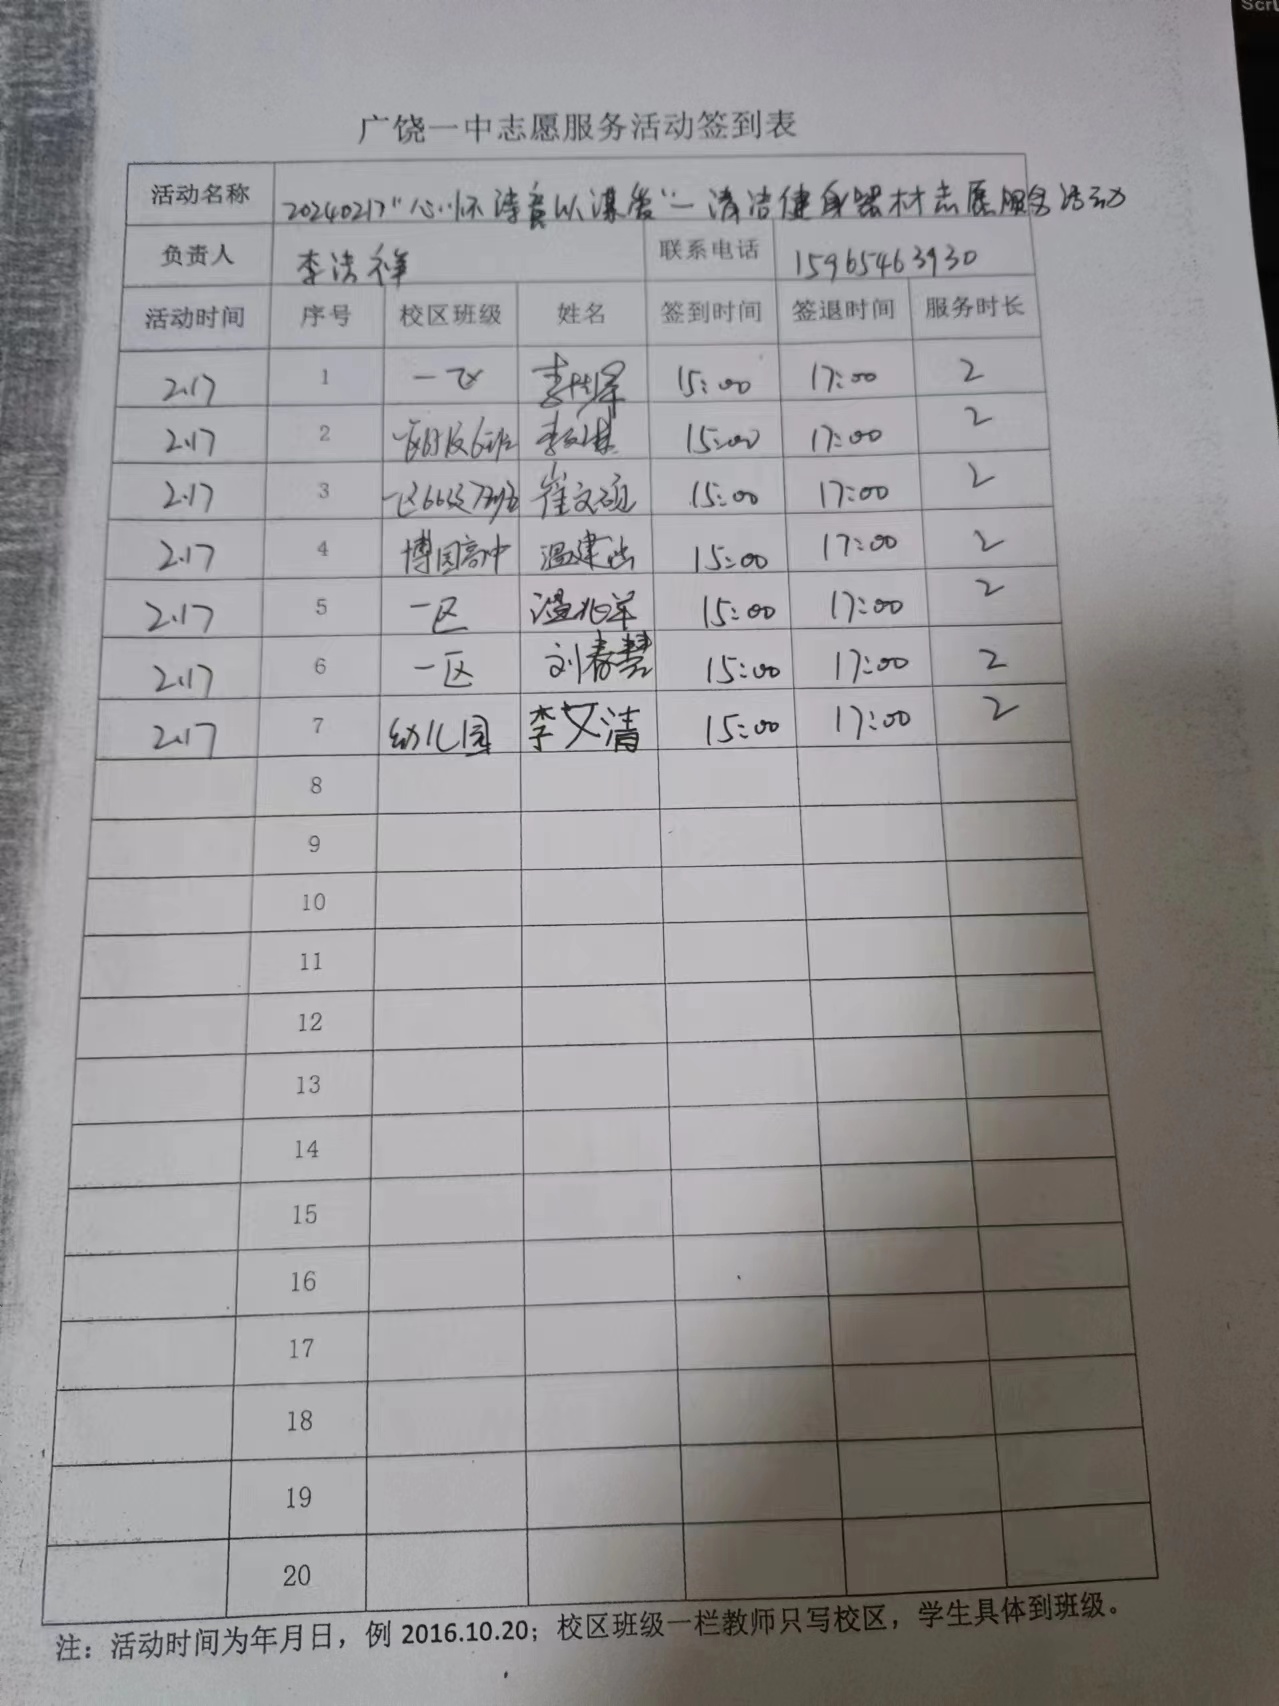 Scrl
广饶一中志愿服务活动签到表
活动名称 20240217"心怀善以满爱"一清洁健身器材志愿服务活动
负责人 李洪祥 联系电话 15965463930
活动时间 序号 校区班级 姓名 签到时间 签退时间 服务时长
2.17 1 一区 李 15:00 17:00 2
2.17 2 一区6班 李 15:00 17:00 2
2.17 3 一区66级7班 崔文硕 15:00 17:00 2
2.17 4 博园高中 温建 15:00 17:00 2
2.17 5 一区 温兆军 15:00 17:00 2
2.17 6 一区 刘春慧 15:00 17:00 2
2.17 7 幼儿园 李文清 15:00 17:00 2
8
9
10
11
12
13
14
15
16
17
18
19
20
注：活动时间为年月日，例 2016.10.20；校区班级一栏教师只写校区，学生具体到班级。